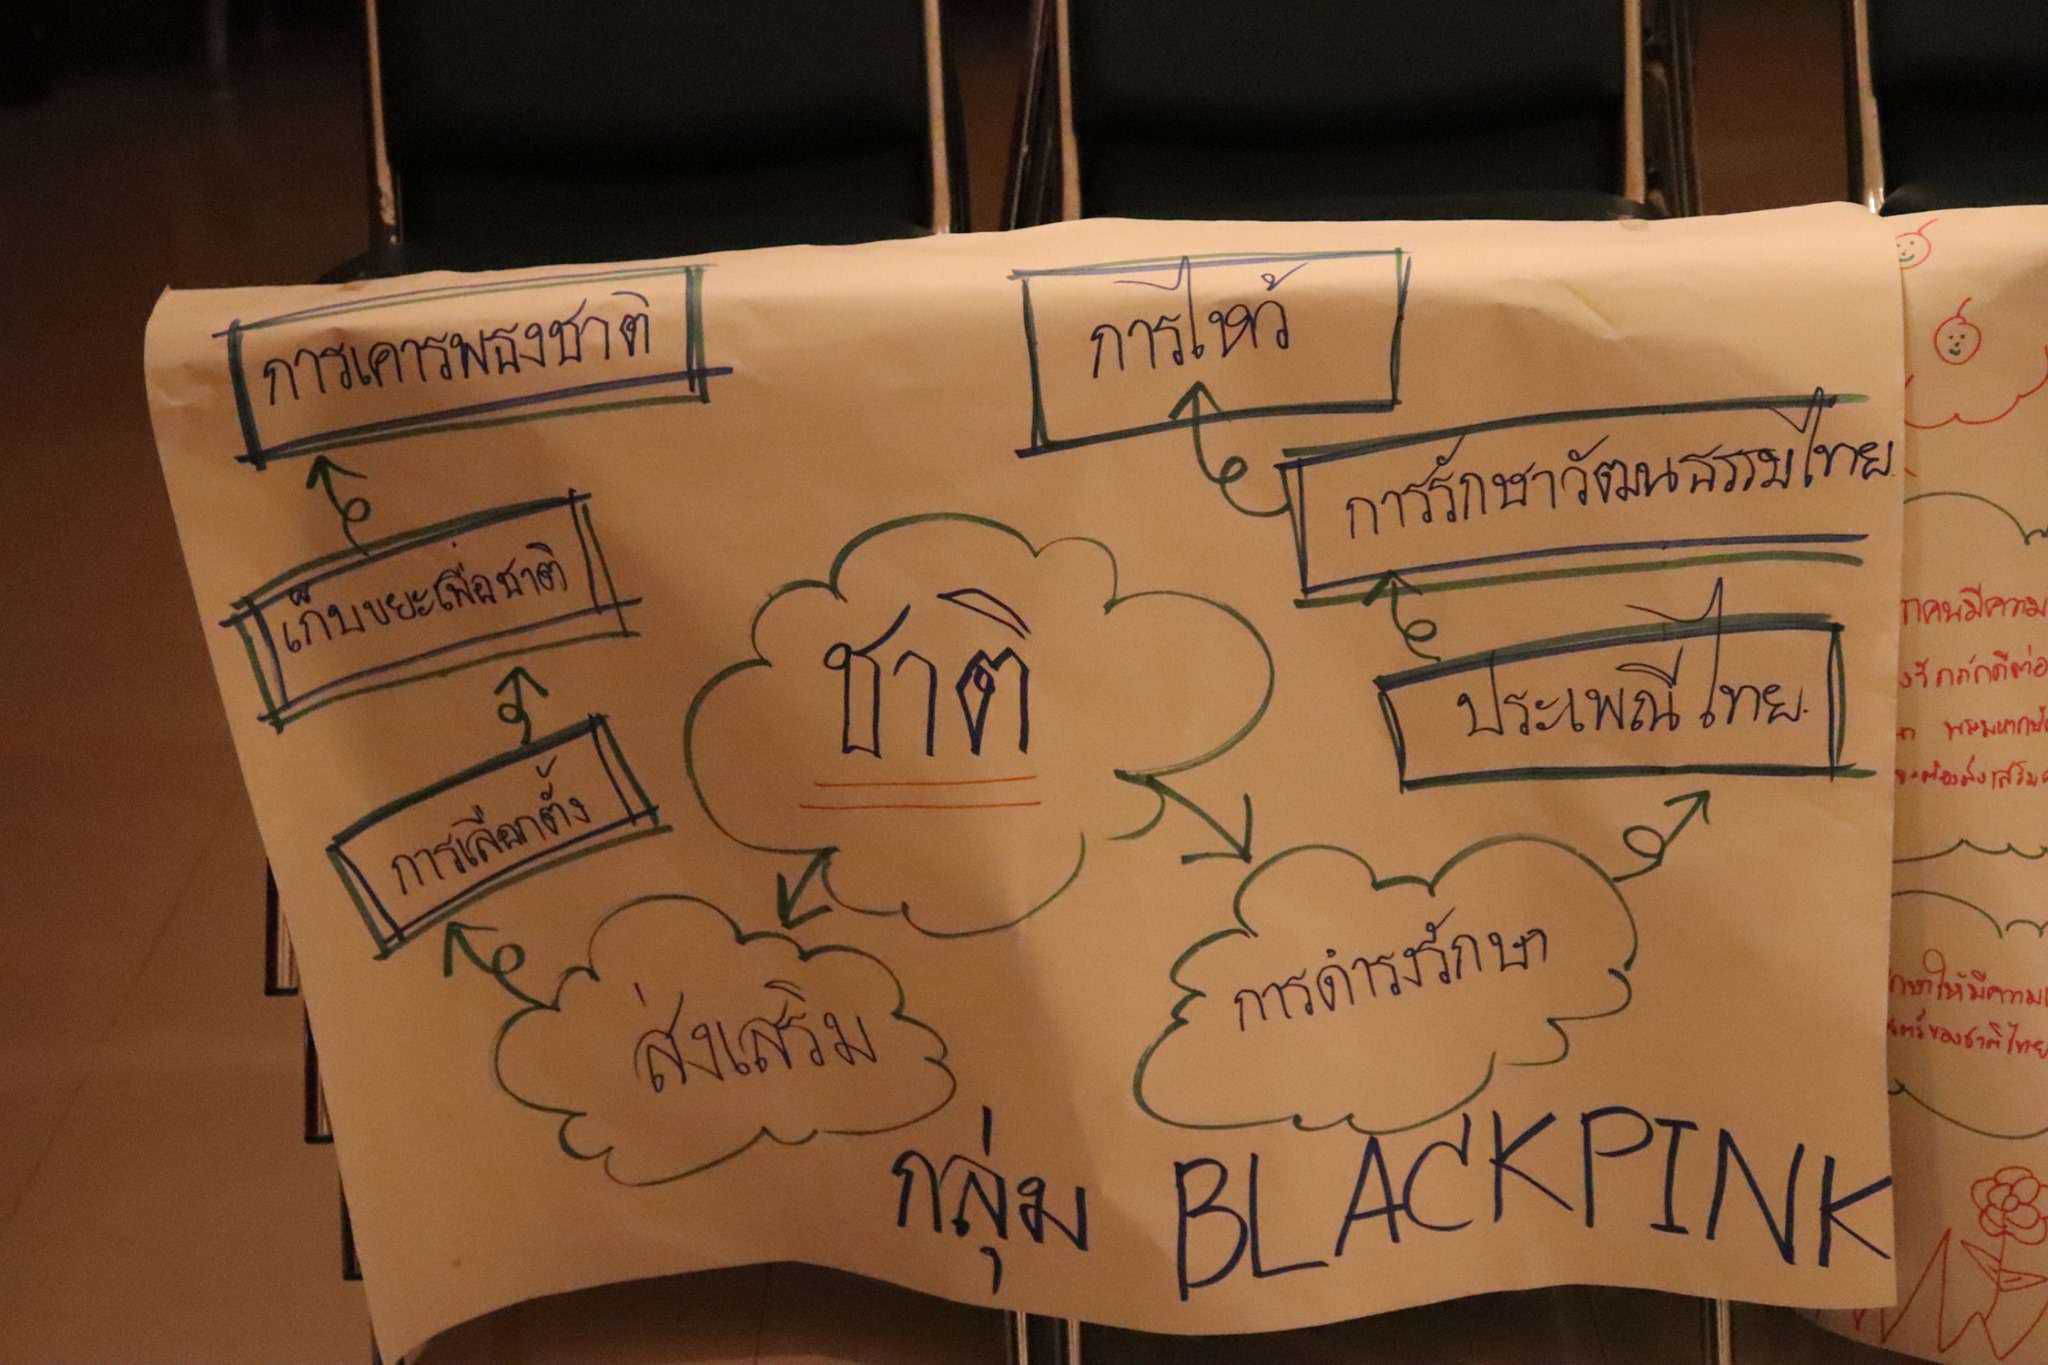 การเคารพธงชาติ
เก็บขยะเพื่อชาติ
การเลือกตั้ง
ส่งเสริม
ชาติ
การไหว้
การรักษาวัฒนธรรมไทย
ประเพณีไทย
การดำรงรักษา
กลุ่ม BLACKPINK
กคนมีความ
ักภักดีต่อ
พระมหากษั
ต้องส่งเสริม
กษาให้มีความ
ของชาติไทย